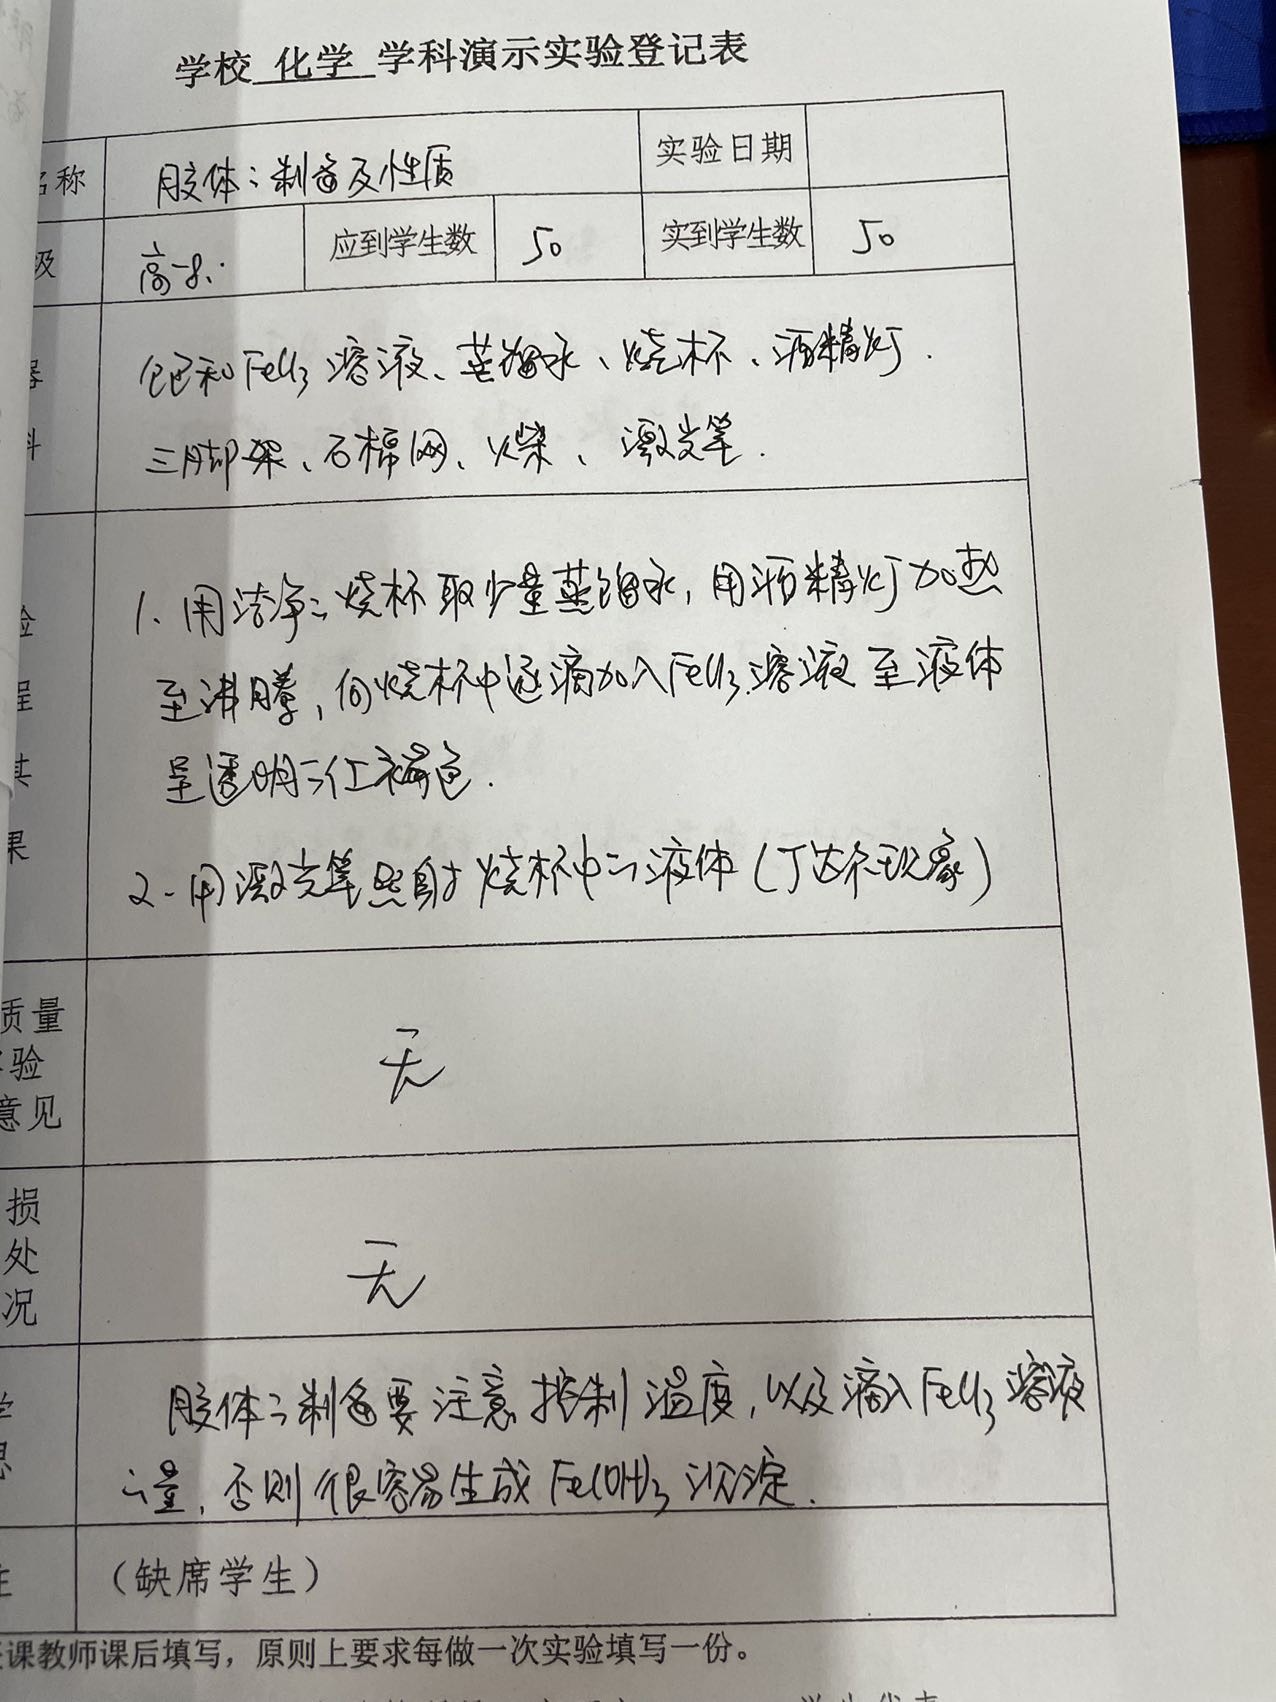 学校 化学 学科演示实验登记表
名称 胶体的制备及性质 实验日期
级 高一8. 应到学生数 50 实到学生数 50
饱和FeCl3溶液、蒸馏水、烧杯、酒精灯.
料 三脚架、石棉网、火柴、激光笔.
验 1. 用洁净的烧杯取少量蒸馏水,用酒精灯加热
程 至沸腾,向烧杯中逐滴加入FeCl3溶液至液体
其 呈透明的红褐色.
果 2. 用激光笔照射烧杯中的液体(丁达尔现象)
质量
验 无
意见
损
处 无
况
学 胶体的制备要注意控制温度,以及滴入FeCl3溶液
思 的量,否则很容易生成Fe(OH)3沉淀.
注 (缺席学生)
课教师课后填写,原则上要求每做一次实验填写一份。